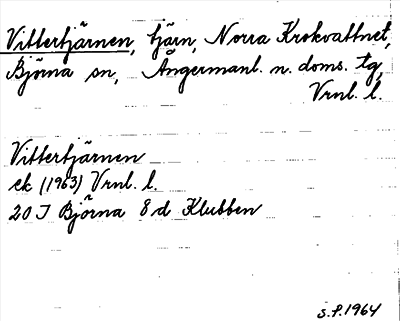 Vittertjärnen, tjärn, Norra Krokvattnet,
Björna sn, Ångermanl. n. doms. tg,
Vrnl. l.
Vittertjärnen
ek (1963) Vrnl. l.
20 I Björna 8 d Klubben
S.P. 1964